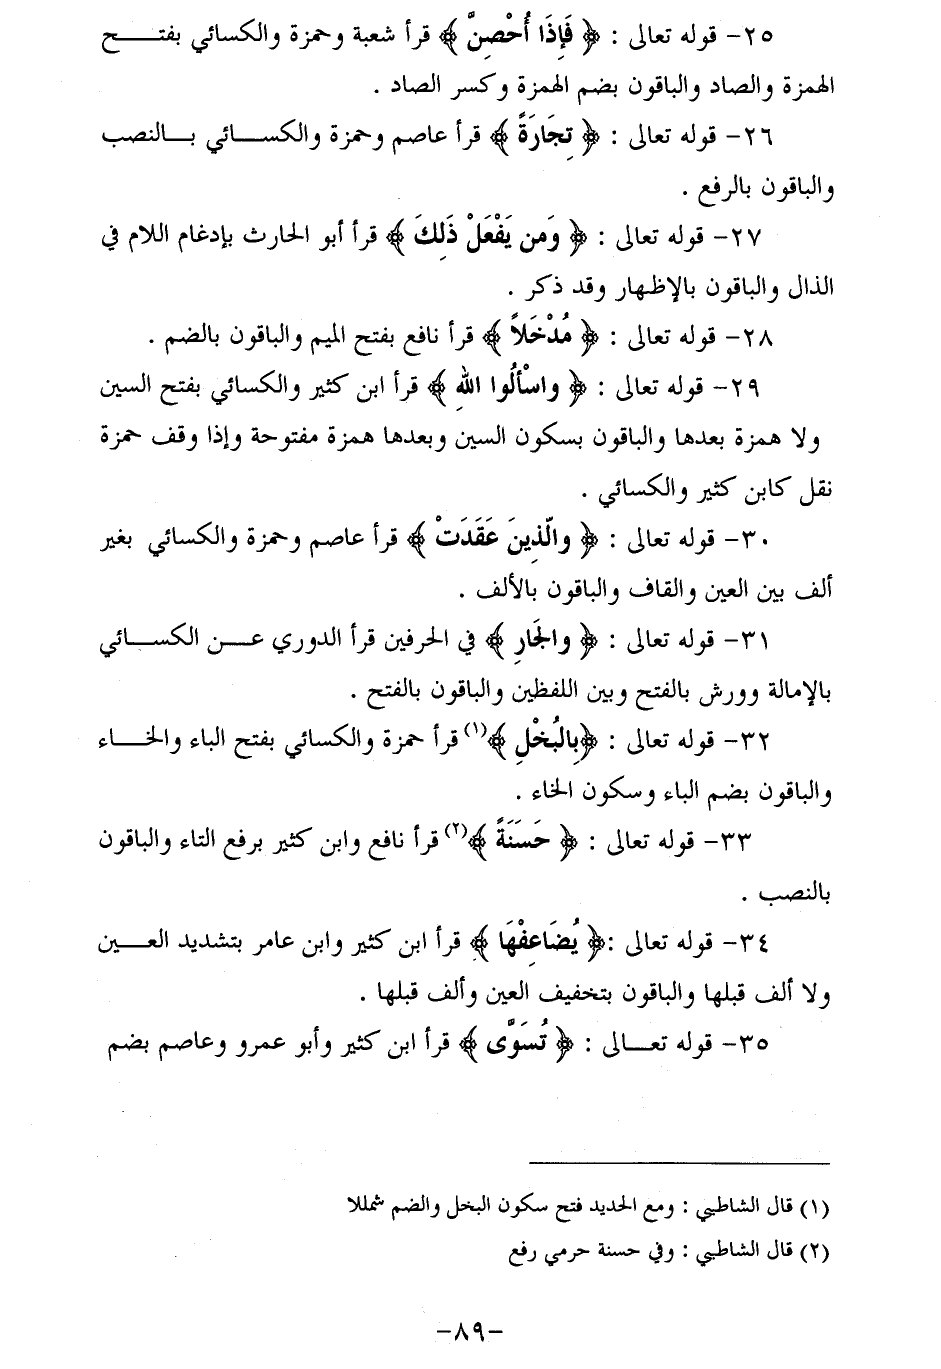 ٢٥- قوله تعالى : ﴿ فَإِذَا أُحْصِنَّ ﴾ قرأ شعبة وحمزة والكسائي بفتـــح
الهمزة والصاد والباقون بضم الهمزة وكسر الصاد .
٢٦- قوله تعالى : ﴿ تِجَارَةً ﴾ قرأ عاصم وحمزة والكســـائي بـــالنصب
والباقون بالرفع .
٢٧- قوله تعالى : ﴿ وَمَن يَفْعَلْ ذَلِكَ ﴾ قرأ أبو الحارث بإدغام اللام في
الذال والباقون بالإظهار وقد ذكر .
٢٨- قوله تعالى : ﴿ مُدْخَلاً ﴾ قرأ نافع بفتح الميم والباقون بالضم .
٢٩- قوله تعالى : ﴿ واسْأَلُوا اللهِ ﴾ قرأ ابن كثير والكسائي بفتح السين
ولا همزة بعدها والباقون بسكون السين وبعدها همزة مفتوحة وإذا وقف حمزة
نقل كابن كثير والكسائي .
٣٠- قوله تعالى : ﴿ والَّذِينَ عَقَدَتْ ﴾ قرأ عاصم وحمزة والكسائي بغير
ألف بين العين والقاف والباقون بالألف .
٣١- قوله تعالى : ﴿ والجَارِ ﴾ في الحرفين قرأ الدوري عـــن الكســـائي
بالإمالة وورش بالفتح وبين اللفظين والباقون بالفتح .
٣٢- قوله تعالى : ﴿بِالبُخْلِ ﴾(١) قرأ حمزة والكسائي بفتح الباء والخـــاء
والباقون بضم الباء وسكون الخاء .
٣٣- قوله تعالى : ﴿ حَسَنَةً ﴾(٢) قرأ نافع وابن كثير برفع التاء والباقون
بالنصب .
٣٤- قوله تعالى :﴿ يُضَاعِفْهَا ﴾ قرأ ابن كثير وابن عامر بتشديد العـــين
ولا ألف قبلها والباقون بتخفيف العين وألف قبلها .
٣٥- قوله تعـــالى : ﴿ تُسَوَّى ﴾ قرأ ابن كثير وأبو عمرو وعاصم بضم
(١) قال الشاطبي : ومع الحديد فتح سكون البخل والضم شمللا
(٢) قال الشاطبي : وفي حسنة حرمي رفع
-٨٩-